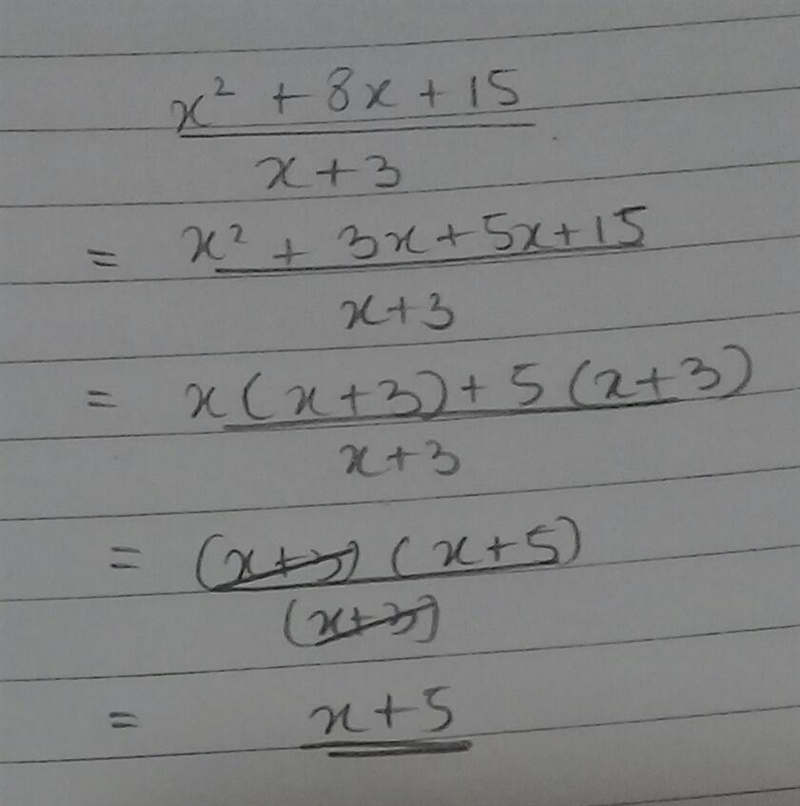 x² + 8x + 15
x + 3
= x² + 3x + 5x + 15
x + 3
= x (x + 3) + 5 (x + 3)
x + 3
= (x + 3) (x + 5)
(x + 3)
= x + 5